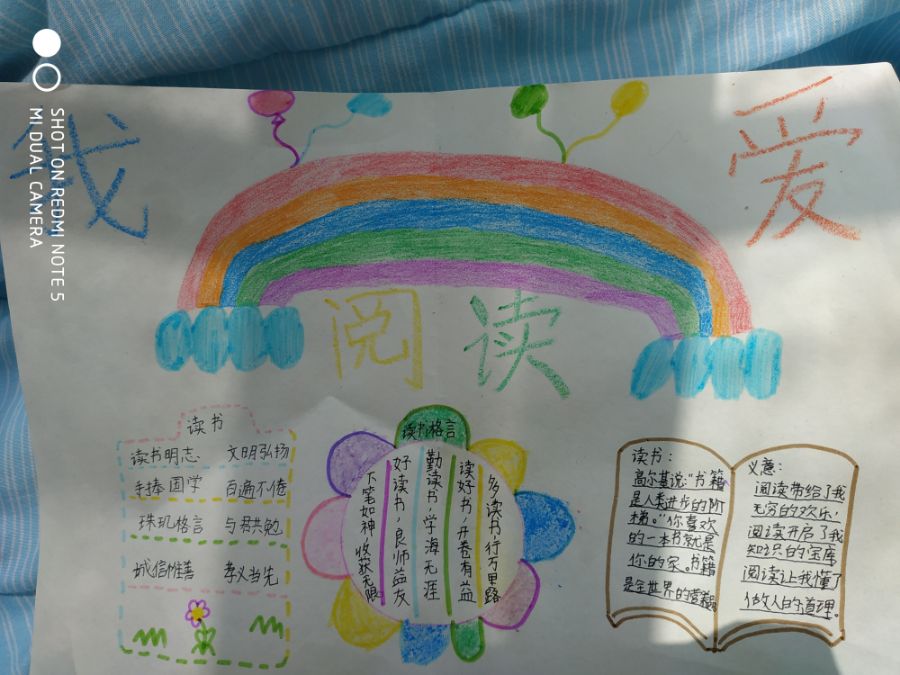 SHOT ON REDMI NOTE 5
MI DUAL CAMERA
我 爱
阅读
读书
读书明志 文明弘扬
手捧国学 百遍不倦
珠玑格言 与君共勉
诚信惟善 孝义当先
读书格言
多读书,行万里路
读好书,开卷有益
勤读书,学海无涯
好读书,良师益友
下笔如神 收获无限
读书:
高尔基说:“书籍
是人类进步的阶
梯。”你喜欢
的一本书就是
你的家。书籍
是全世界的营养
义意:
阅读带给了我
无穷的欢乐,
阅读开启了我
知识的宝库
阅读让我懂了
做人的道理。